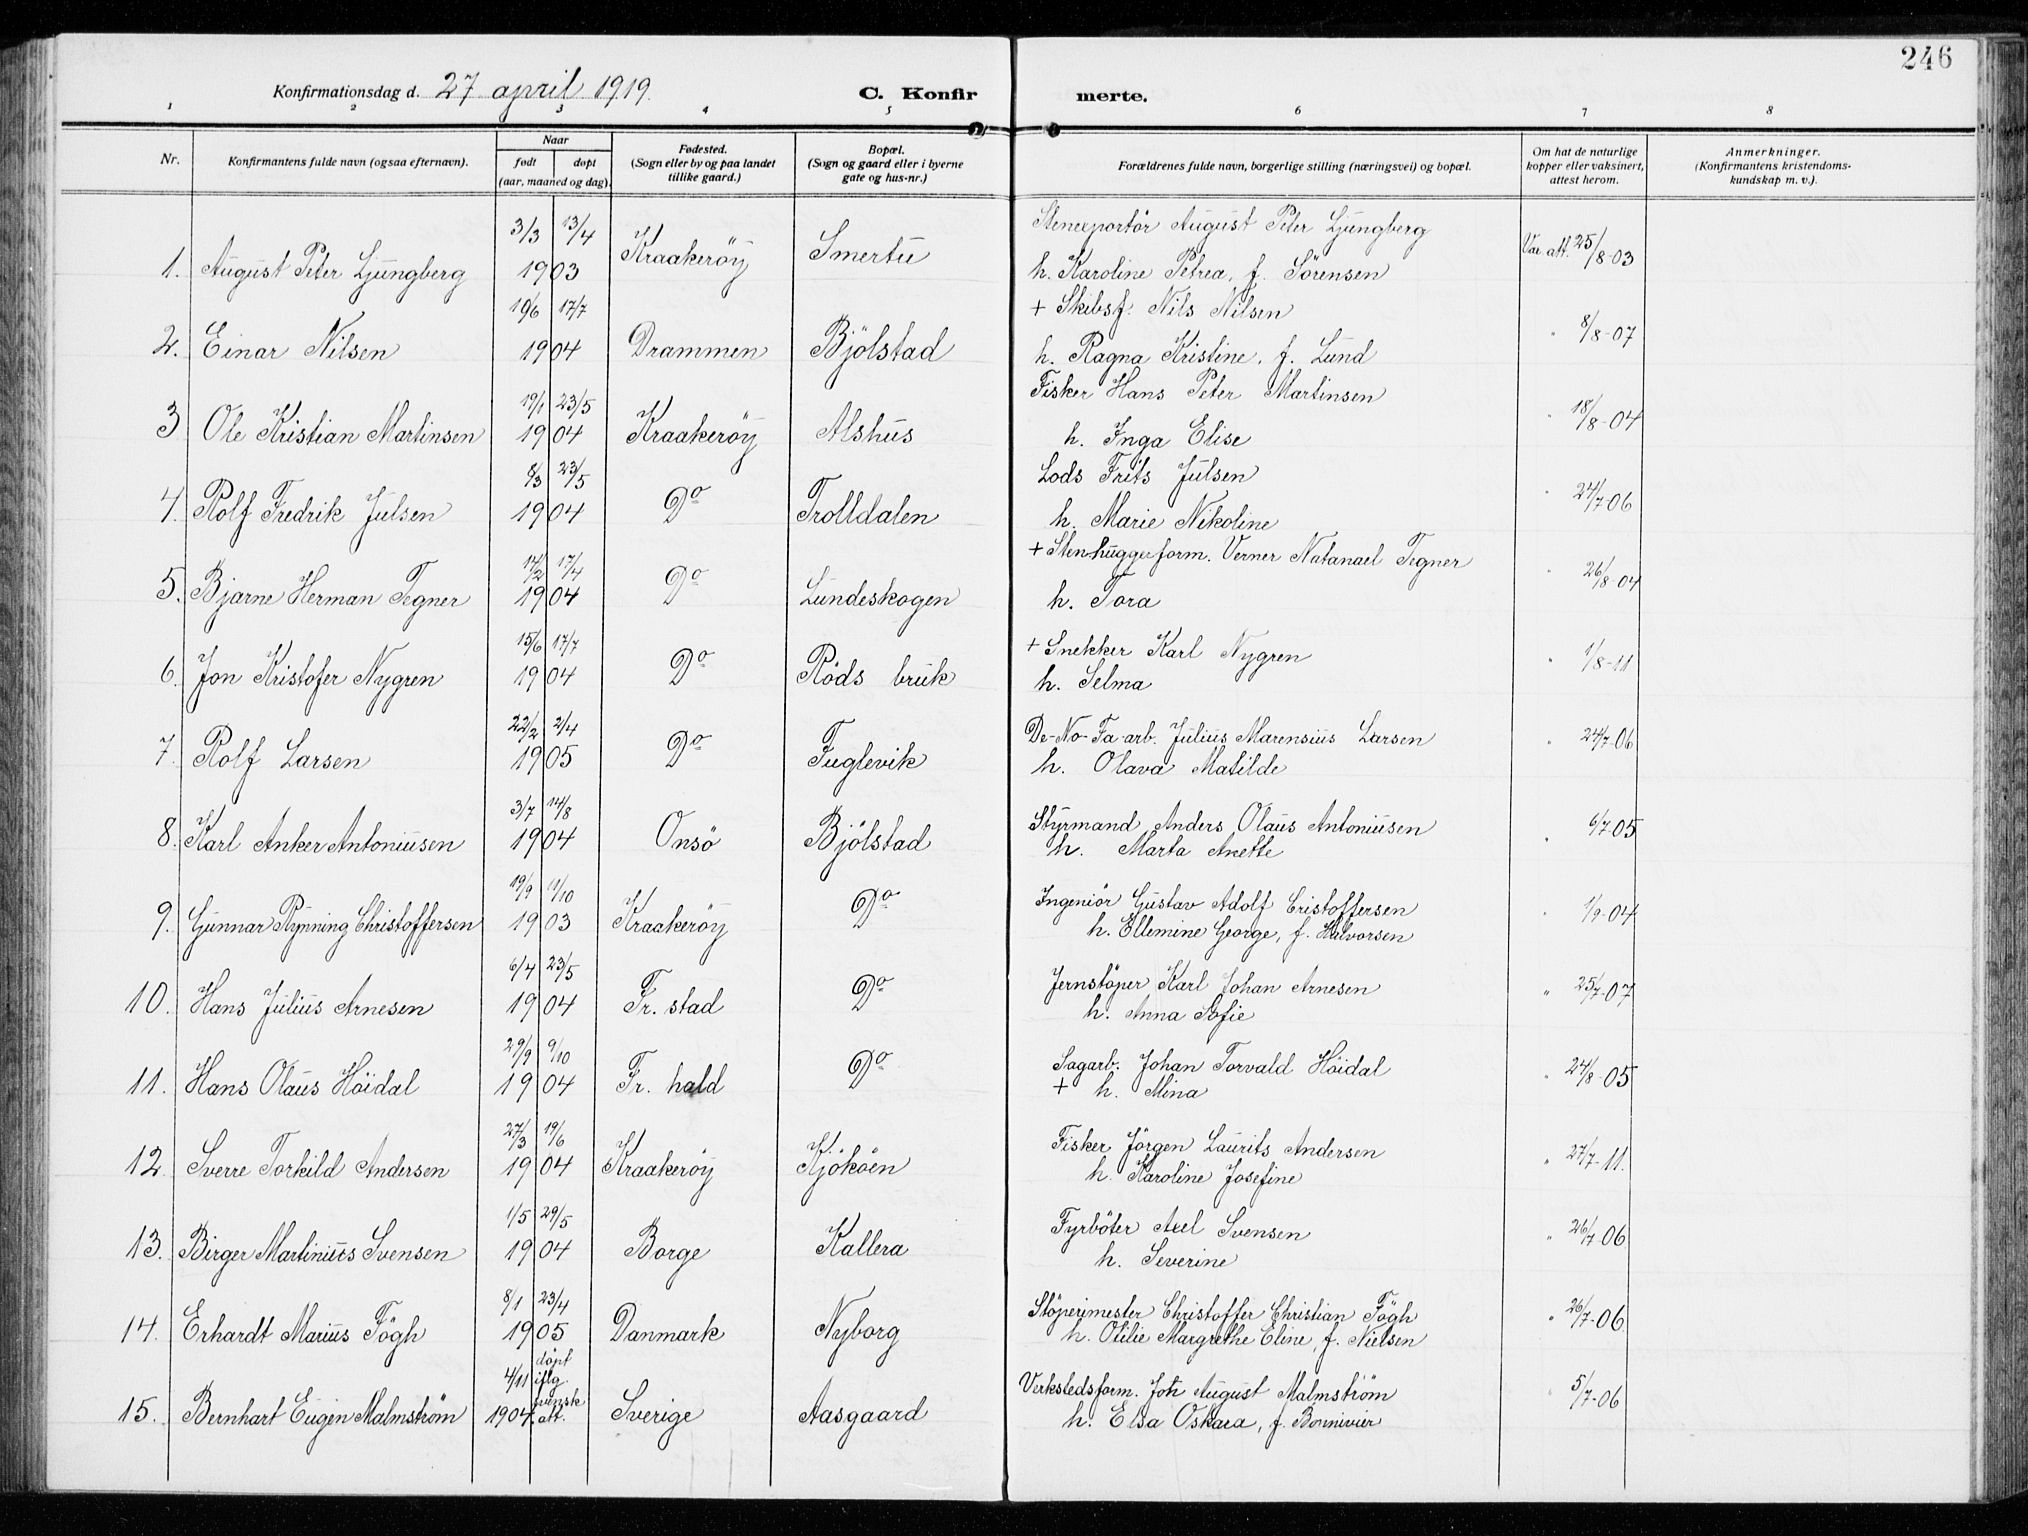 246
Konfirmationsdag d. 27 april 1919.
C. Konfir merte.
1 2 3 4 5 6 7 8
Nr.
Konfirmantens fulde navn (ogsaa efternavn).
Naar
født døpt
(aar, maaned og dag).
Fødested.
(Sogn eller by og paa landet
tillike gaard.)
Bopæl.
(Sogn og gaard eller i byerne
gate og hus-nr.)
Forældrenes fulde navn, borgerlige stilling (næringsvei) og bopæl.
Om hat de naturlige
kopper eller vaksinert,
attest herom.
Anmerkninger.
(Konfirmantens kristendoms-
kundskap m. v.).
3/3 13/4 Stenexportör August Peter Ljungberg
1. August Peter Ljungberg 1903 Kraakeröy Smertu h. Karoline Petrea, f. Sörensen Vac. att. 25/8-03
19/6 17/7 + Skibsf. Nils Nilsen
2. Einar Nilsen 1904 Drammen Bjölstad h. Ragna Kristine, f. Lund " 8/8-07
19/1 23/5 Fisker Hans Peter Martinsen
3 Ole Kristian Martinsen 1904 Kraakeröy Alshus h. Inga Elise " 18/8-04
8/3 23/5 Lods Frits Julsen
4. Rolf Fredrik Julsen 1904 Do Trolldalen h. Marie Nikoline " 24/7 06
14/2 17/4 + Stenhuggerform. Verner Natanael Tegner
5. Bjarne Herman Tegner 1904 Do Lundeskogen h. Tora " 26/8-04
15/6 17/7 + Snekker Karl Nygren
6. Jon Kristofer Nygren 1904 Do Röds bruk h. Selma " 1/8-11
22/2 2/4 De-No-Fa-arb. Julius Marensius Larsen
7. Rolf Larsen 1905 Do Fuglevik h. Olava Matilde " 24/7-06
3/7 14/8 Styrmand Anders Olaus Antoniusen
8. Karl Anker Antoniusen 1904 Onsö Bjölstad h. Marta Anette " 6/7 05
19/9 1/10 Ingeniör Gustav Adolf Cristoffersen
9. Gunnar Rynning Christoffersen 1903 Kraakeröy Do h. Ellemine George, f. Halvorsen " 1/9-04
6/4 23/5 Jernstöper Karl Johan Arnesen
10. Hans Julius Arnesen 1904 Fr. stad Do h. Anna Sofie " 25/7-07
29/9 9/10 Sagarb. Johan Torvald Höidal
11. Hans Olaus Höidal 1904 Fr. hald Do + h. Mina " 24/8-05
27/3 19/6 Fisker Jörgen Laurits Andersen
12. Sverre Torkild Andersen 1904 Kraakeröy Kjököen h. Karoline Josefine " 27/7-11.
1/5 29/5 Fyrböter Axel Svensen
13. Birger Martinius Svensen 1904 Borge Kallera h. Severine " 26/7-06.
8/1 23/4 Stöperimester Christoffer Christian Fögh
14. Erhardt Marius Fögh 1905 Danmark Nyborg h. Otilie Margrethe Eline, f. Nielsen " 26/7-06.
4/11 döpt iflg. svensk att. Verkstedsform. Joh August Malmström
15. Bernhart Eugen Malmström 1904. Sverige Aasgaard h. Elsa Oskara, f. Bonnivier " 5/7-06